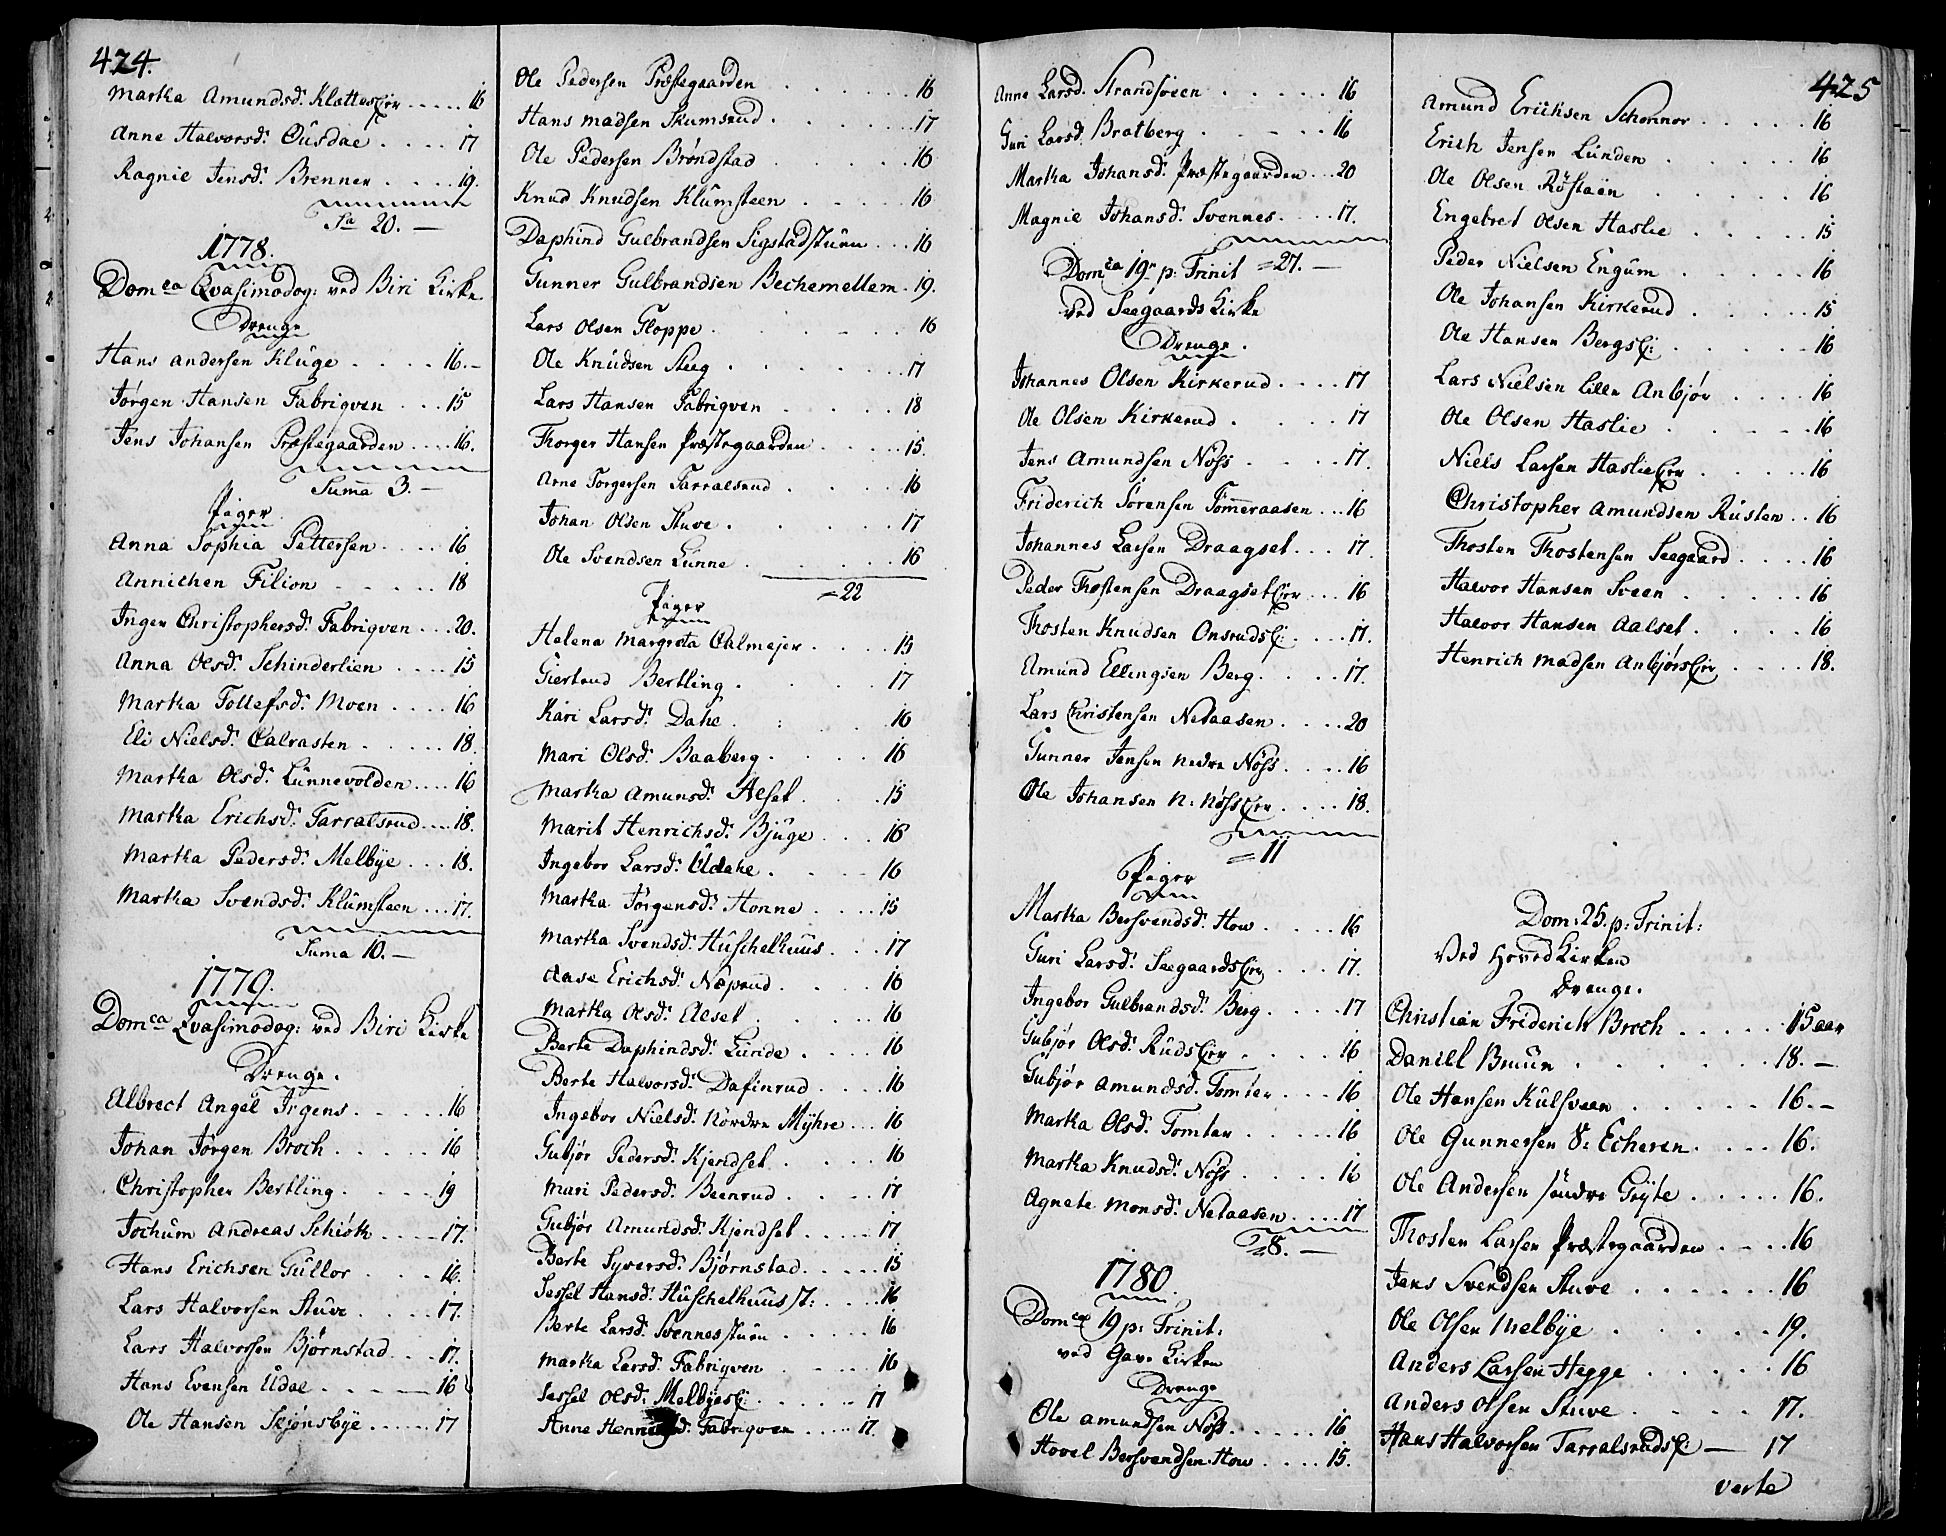 424.
Martha Amundsd: Klattes Eje ..... 16
Anne Halvorsd: Ousdae .... 17
Ragnie Jensd: Brenner .... 19.
Sa 20. —
1778.
Domca Qvasimodog: ved Biri Kirke
Drenge
Hans andersen Kluge .... 16.-
Jørgen Hansen Fabriqven ... 15
Jens Johansen Præstegaarden .... 16.
Suma 3. —
Piger
Anna Sophia Pettersen .... 16
Annichen Filion ..... 18
Inger Christophersd: Fabriqven ... 20.
Anna Olsd: Schinderlien .... 15
Martha Tollefsd: Moen .... 16
Eli Nielsd: Calrasten ..... 18.
Martha Olsd: Lünnevolden .... 16
Martha Erichsd: Tarralsrud .... 18.
Martha Pedersd: Melbÿe ... 18.
Martha Svendsd: Klümsteen ... 17.
Suma 10. —
1779.
Domca Qvasimodog: ved Biri Kirke
Drenge.
Albrect Angel Irgens ..... 16
Johan Jørgen Broch ..... 16
Christopher Bertling ..... 19
Jochüm Andreas Schiøth .... 17.
Hans Erichsen Güllor .... 16.
Lars Halvorsen Stuve .... 17.
Lars Halvorsen Bjørnstad ... 17.
Hans Evensen Udal ..... 16
Ole Hansen Skjønsbÿe ..... 17
Ole Pedersen Præstegaarden ...... 16
Hans Madsen Skumsrud ...... 17
Ole Pedersen Brøndstad ...... 16
Knud Knudsen Klümsteen ..... 16
Daphind Gulbrandsen Sigstadstuen ... 16
Gunner Gulbrandsen Bechemellem . 19.
Lars Olsen Gloppe ..... 16
Ole Knüdsen Steeg ...... 17
Lars Hansen Fabriqven ..... 18
Thorger Hansen Præstegaarden ..... 15.
Arne Torgersen Tarralsrud .... 16
Johan Olsen Stuve ...... 17
Ole Svendsen Lünne ...... 16
=22
Piger
Helena Margreta Calmejer ..... 15
Giertrud Bertling ..... 17
Kari Larsd: Dahe ..... 16
Mari Olsd: Baaberg ..... 16
Martha Amunsd: Alset .... 15
Marit Henrichsd: Bjüge ... 16
Ingebor Larsd: Udahe .... 16
Martha Jørgensd: Honne .... 15
Martha Svendsd: Huschelhuus ... 17
Aase Erichsd: Næprud .... 16
Martha Olsd: Alset ..... 16
Berte Daphindsd: Lunde .... 16
Berte Halvorsd: Dafinrud .... 16
Ingebor Nielsd: Nordre Mÿhre ... 16
Gubjør Pedersd: Kjendset ..... 16
Mari Pedersd: Beenrud .... 17
Gubjør Amundsd: Kjendset .... 17
Berte Syversd: Bjørnstad ..... 15
Sessel Hansd: Huschelhuus st: .... 16
Berte Larsd: Svennesstuen ..... 16
Martha Larsd: Fabriqven .... 16
Sessel Olsd: Melbÿes E: ..... 17
Anne Fabriqven .... 17
Anne Larsd: Strandsveen ..... 16
Guri Larsd: Bratberg ..... 16
Martha Johansd: Præstegaarden ... 20
Magnie Johansd: Svennes .... 17.
=27. —
Domca 19n p: Trinit
ved Seegaards Kirke
Drenge.
Johannes Olsen Kirkerud .... 17
Ole Olsen Kirkerud ..... 17
Jens Amundsen Nøss ..... 17.
Friderich Sørensen Tømmeraasen ... 16
Johannes Larsen Draagset ... 17.
Peder Thostensen Draagset Eje ... 16
Thosten Knudsen Onsruds E: .... 17.
Amund Ellingsen Berg .... 17.
Lars Christensen Nedaasen .... 20
Gunner Jensen nedre Nøss .... 16
Ole Johansen N: Nøss Eje .... 18.
=11
Piger
Martha Bersvendsd: How ..... 16
Guri Larsd: Seegaards Eje .... 17.
Ingebor Gulbrandsd: Berg .... 17
Gubjør Olsd: Ruds Eje ..... 16
Gubjør Amundsd: Tomter ... 16
Martha Olsd: Tomter ..... 16
Martha Knudsd: Nøss ..... 16
Agnete Monsd: Nedaasen .... 17
=8. —
1780.
Domca 19 p: Trinit:
ved Gave Kirken
Drenge
Ole Amundsen Nøss ...... 16
Hovel Bersvendsen How .... 15.
425
Amund Erichsen Schonnor ..... 16
Erich Jensen Lunden ..... 16
Ole Olsen Røstaen ..... 16
Engebret Olsen Haslie ..... 15
Peder Nielsen Engum ..... 16
Ole Johansen Kirkerud ..... 15
Ole Hansen Bergs E: ..... 16
Lars Nielsen Lille Anbjør .... 16
Ole Olsen Haslie ..... 16
Niels Larsen Haslie Eje ..... 16
Christopher Amundsen Rusten .. 16
Thosten Thostensen Seegaard .... 16
Halvor Hansen Sveen ..... 16
Halvor Hansen Aalset ..... 16
Henrich Madsen Anbjørs Eje .... 18.
Dom: 25. p: Trinit:
Ved Hoved Kirken
Drenge.
Christian Friderich Broch ..... 15 aar
Daniel Bruun ...... 18. —
Ole Hansen Kulsveen ..... 16. -
Ole Gunnersen V: Echeren .... 16.
Ole Andersen søndre Grÿte ..... 16.
Thosten Larsen Præstegaarden .... 16
Jens Svendsen Stuve ...... 16
Ole Olsen Melbÿe ..... 19.
Anders Larsen Hegge ..... 16
Anders Olsen Stuve ..... 17.
Hans Halvorsen Tarralsruds E: — 17
verte